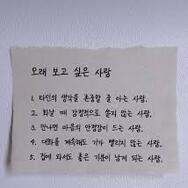 오래 보고 싶은 사람
1. 타인의 생각을 존중할 줄 아는 사람.
2. 화날 때 감정적으로 굴지 않는 사람.
3. 만나면 마음의 안정감이 드는 사람.
4. 대화를 계속해도 기가 빨리지 않는 사람.
5. 집에 와서도 좋은 기분이 남게 되는 사람.